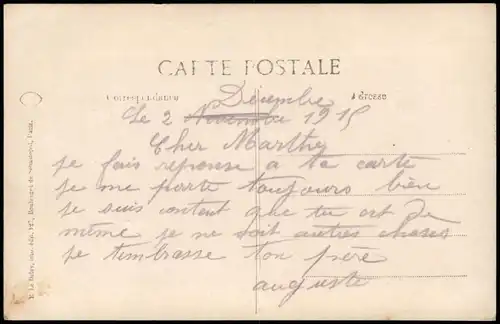 CARTE POSTALE
Correspondance
Adresse
Décembre
Le 2 Novembre 1915
Cher Marthy
je fais reponse a ta carte
je me porte toujours bien
je suis content que tu est de
même je ne soit autres choses
je t'embrasse ton père
auguste